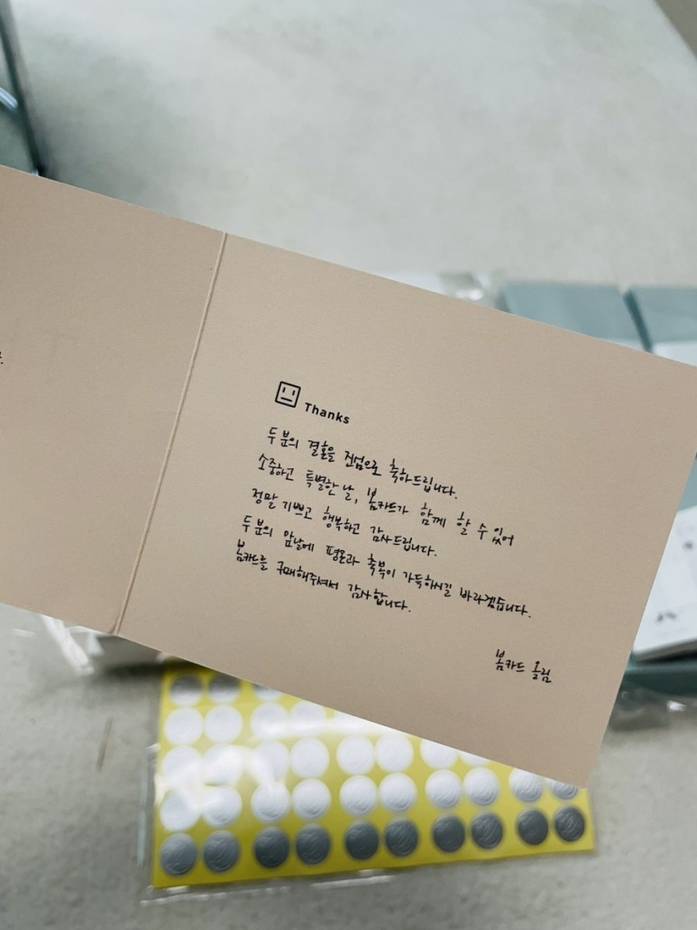 Thanks
두 분의 결혼을 진심으로 축하드립니다.
소중하고 특별한 날, 봄카드가 함께 할 수 있어
정말 기쁘고 행복하고 감사드립니다.
두 분의 앞날에 평온과 축복이 가득하시길 바라겠습니다.
봄카드를 구매해주셔서 감사합니다.
봄카드 올림